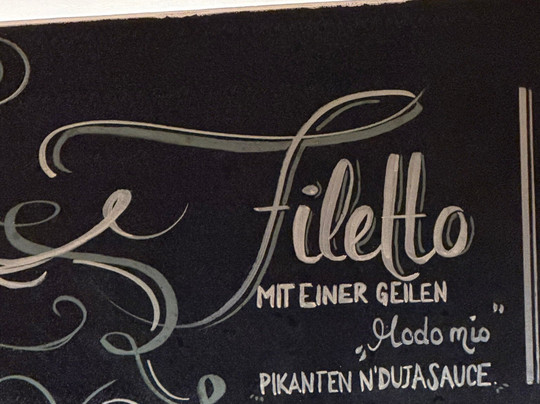 Filetto
MIT EINER GEILEN
„Modo mio"
„PIKANTEN N'DUJASAUCE."